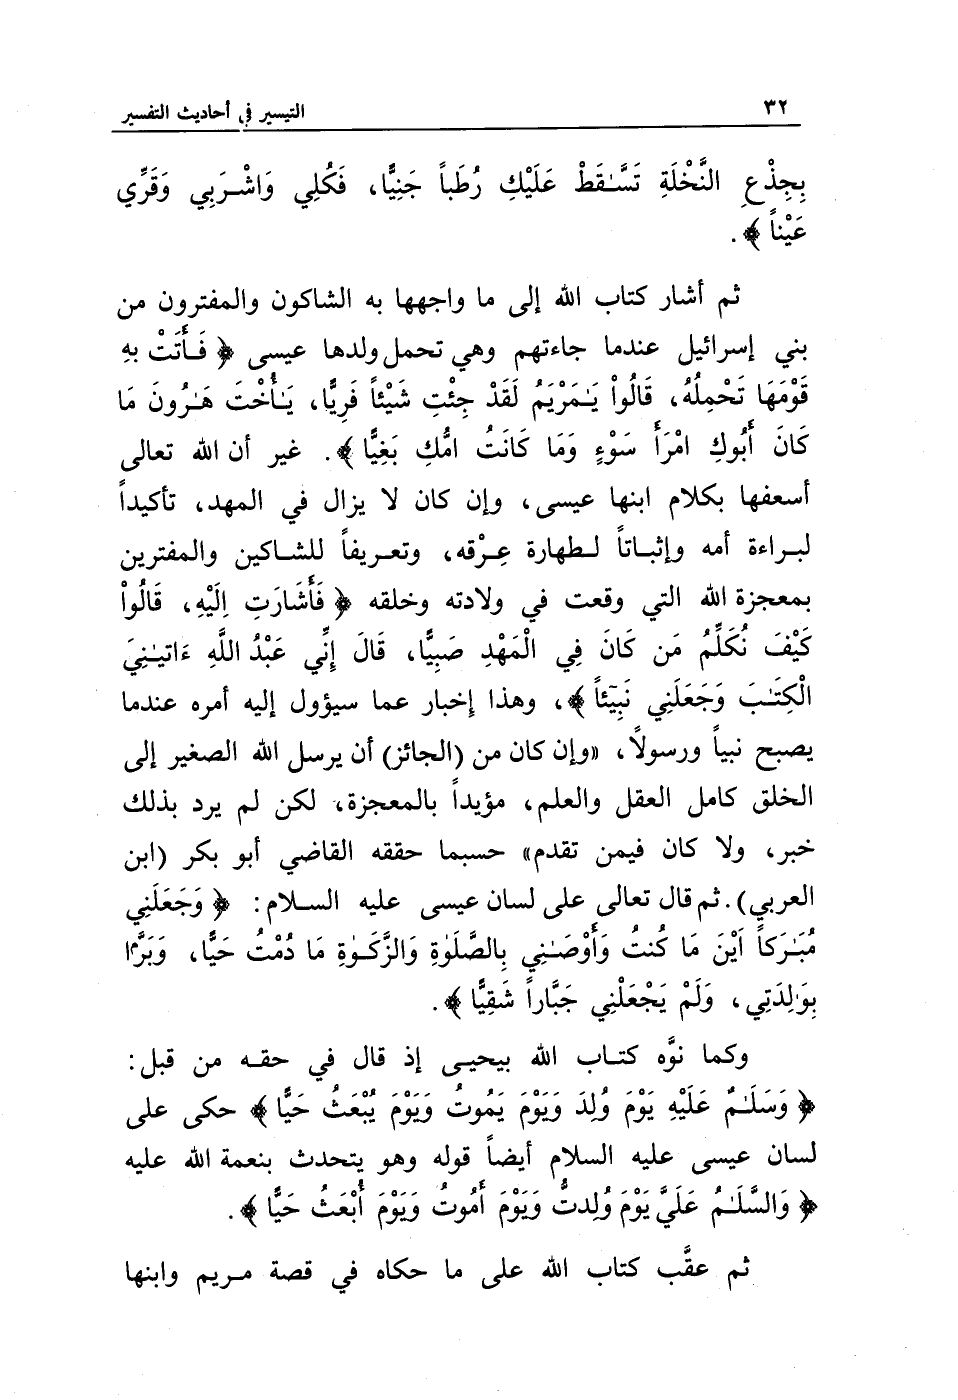 ٣٢ التيسير في أحاديث التفسير
بِجِذْعِ النَّخْلَةِ تَسَّـٰقَطْ عَلَيْكِ رُطَباً جَنِيًّا، فَكُلِي وَاشْرَبِي وَقَرِّي
عَيْناً ﴾.
ثم أشار كتاب الله إلى ما واجهها به الشاكون والمفترون من
بني إسرائيل عندما جاءتهم وهي تحمل ولدها عيسى ﴿ فَأَتَتْ بِهِ
قَوْمَهَا تَحْمِلُهُ، قَالُواْ يَـٰمَرْيَمُ لَقَدْ جِئْتِ شَيْئاً فَرِيًّا، يَـٰأُخْتَ هَـٰرُونَ مَا
كَانَ أَبُوكِ امْرَأَ سَوْءٍ وَمَا كَانَتُ امُّكِ بَغِيًّا ﴾. غير أن الله تعالى
أسعفها بكلام ابنها عيسى، وإن كان لا يزال في المهد، تأكيداً
لبراءة أمه وإثباتاً لطهارة عِرْقه، وتعريفاً للشاكين والمفترين
بمعجزة الله التي وقعت في ولادته وخلقه ﴿ فَأَشَارَتِ اِلَيْهِ، قَالُواْ
كَيْفَ نُكَلِّمُ مَن كَانَ فِي الْمَهْدِ صَبِيًّا، قَالَ إِنِّي عَبْدُ اللَّهِ ءَاتيٰنِيَ
الْكِتَـٰبَ وَجَعَلَنِي نَبِيٓئاً ﴾، وهذا إخبار عما سيؤول إليه أمره عندما
يصبح نبياً ورسولاً، «وإن كان من (الجائز) أن يرسل الله الصغير إلى
الخلق كامل العقل والعلم، مؤيداً بالمعجزة، لكن لم يرد بذلك
خبر، ولا كان فيمن تقدم» حسبما حققه القاضي أبو بكر (ابن
العربي). ثم قال تعالى على لسان عيسى عليه السلام: ﴿ وَجَعَلَنِي
مُبَـٰرَكاً اَيْنَ مَا كُنتُ وَأَوْصَـٰنِي بِالصَّلَوٰةِ وَالزَّكَوٰةِ مَا دُمْتُ حَيًّا، وَبَرًّا
بِوَٰلِدَتِي، وَلَمْ يَجْعَلْنِي جَبَّاراً شَقِيًّا ﴾.
وكما نوَّه كتاب الله بيحيى إذ قال في حقه من قبل:
﴿ وَسَلَـٰمٌ عَلَيْهِ يَوْمَ وُلِدَ وَيَوْمَ يَمُوتُ وَيَوْمَ يُبْعَثُ حَيًّا ﴾ حكى على
لسان عيسى عليه السلام أيضاً قوله وهو يتحدث بنعمة الله عليه
﴿ وَالسَّلَـٰمُ عَلَيَّ يَوْمَ وُلِدتُّ وَيَوْمَ أَمُوتُ وَيَوْمَ أُبْعَثُ حَيًّا ﴾.
ثم عقَّب كتاب الله على ما حكاه في قصة مريم وابنها